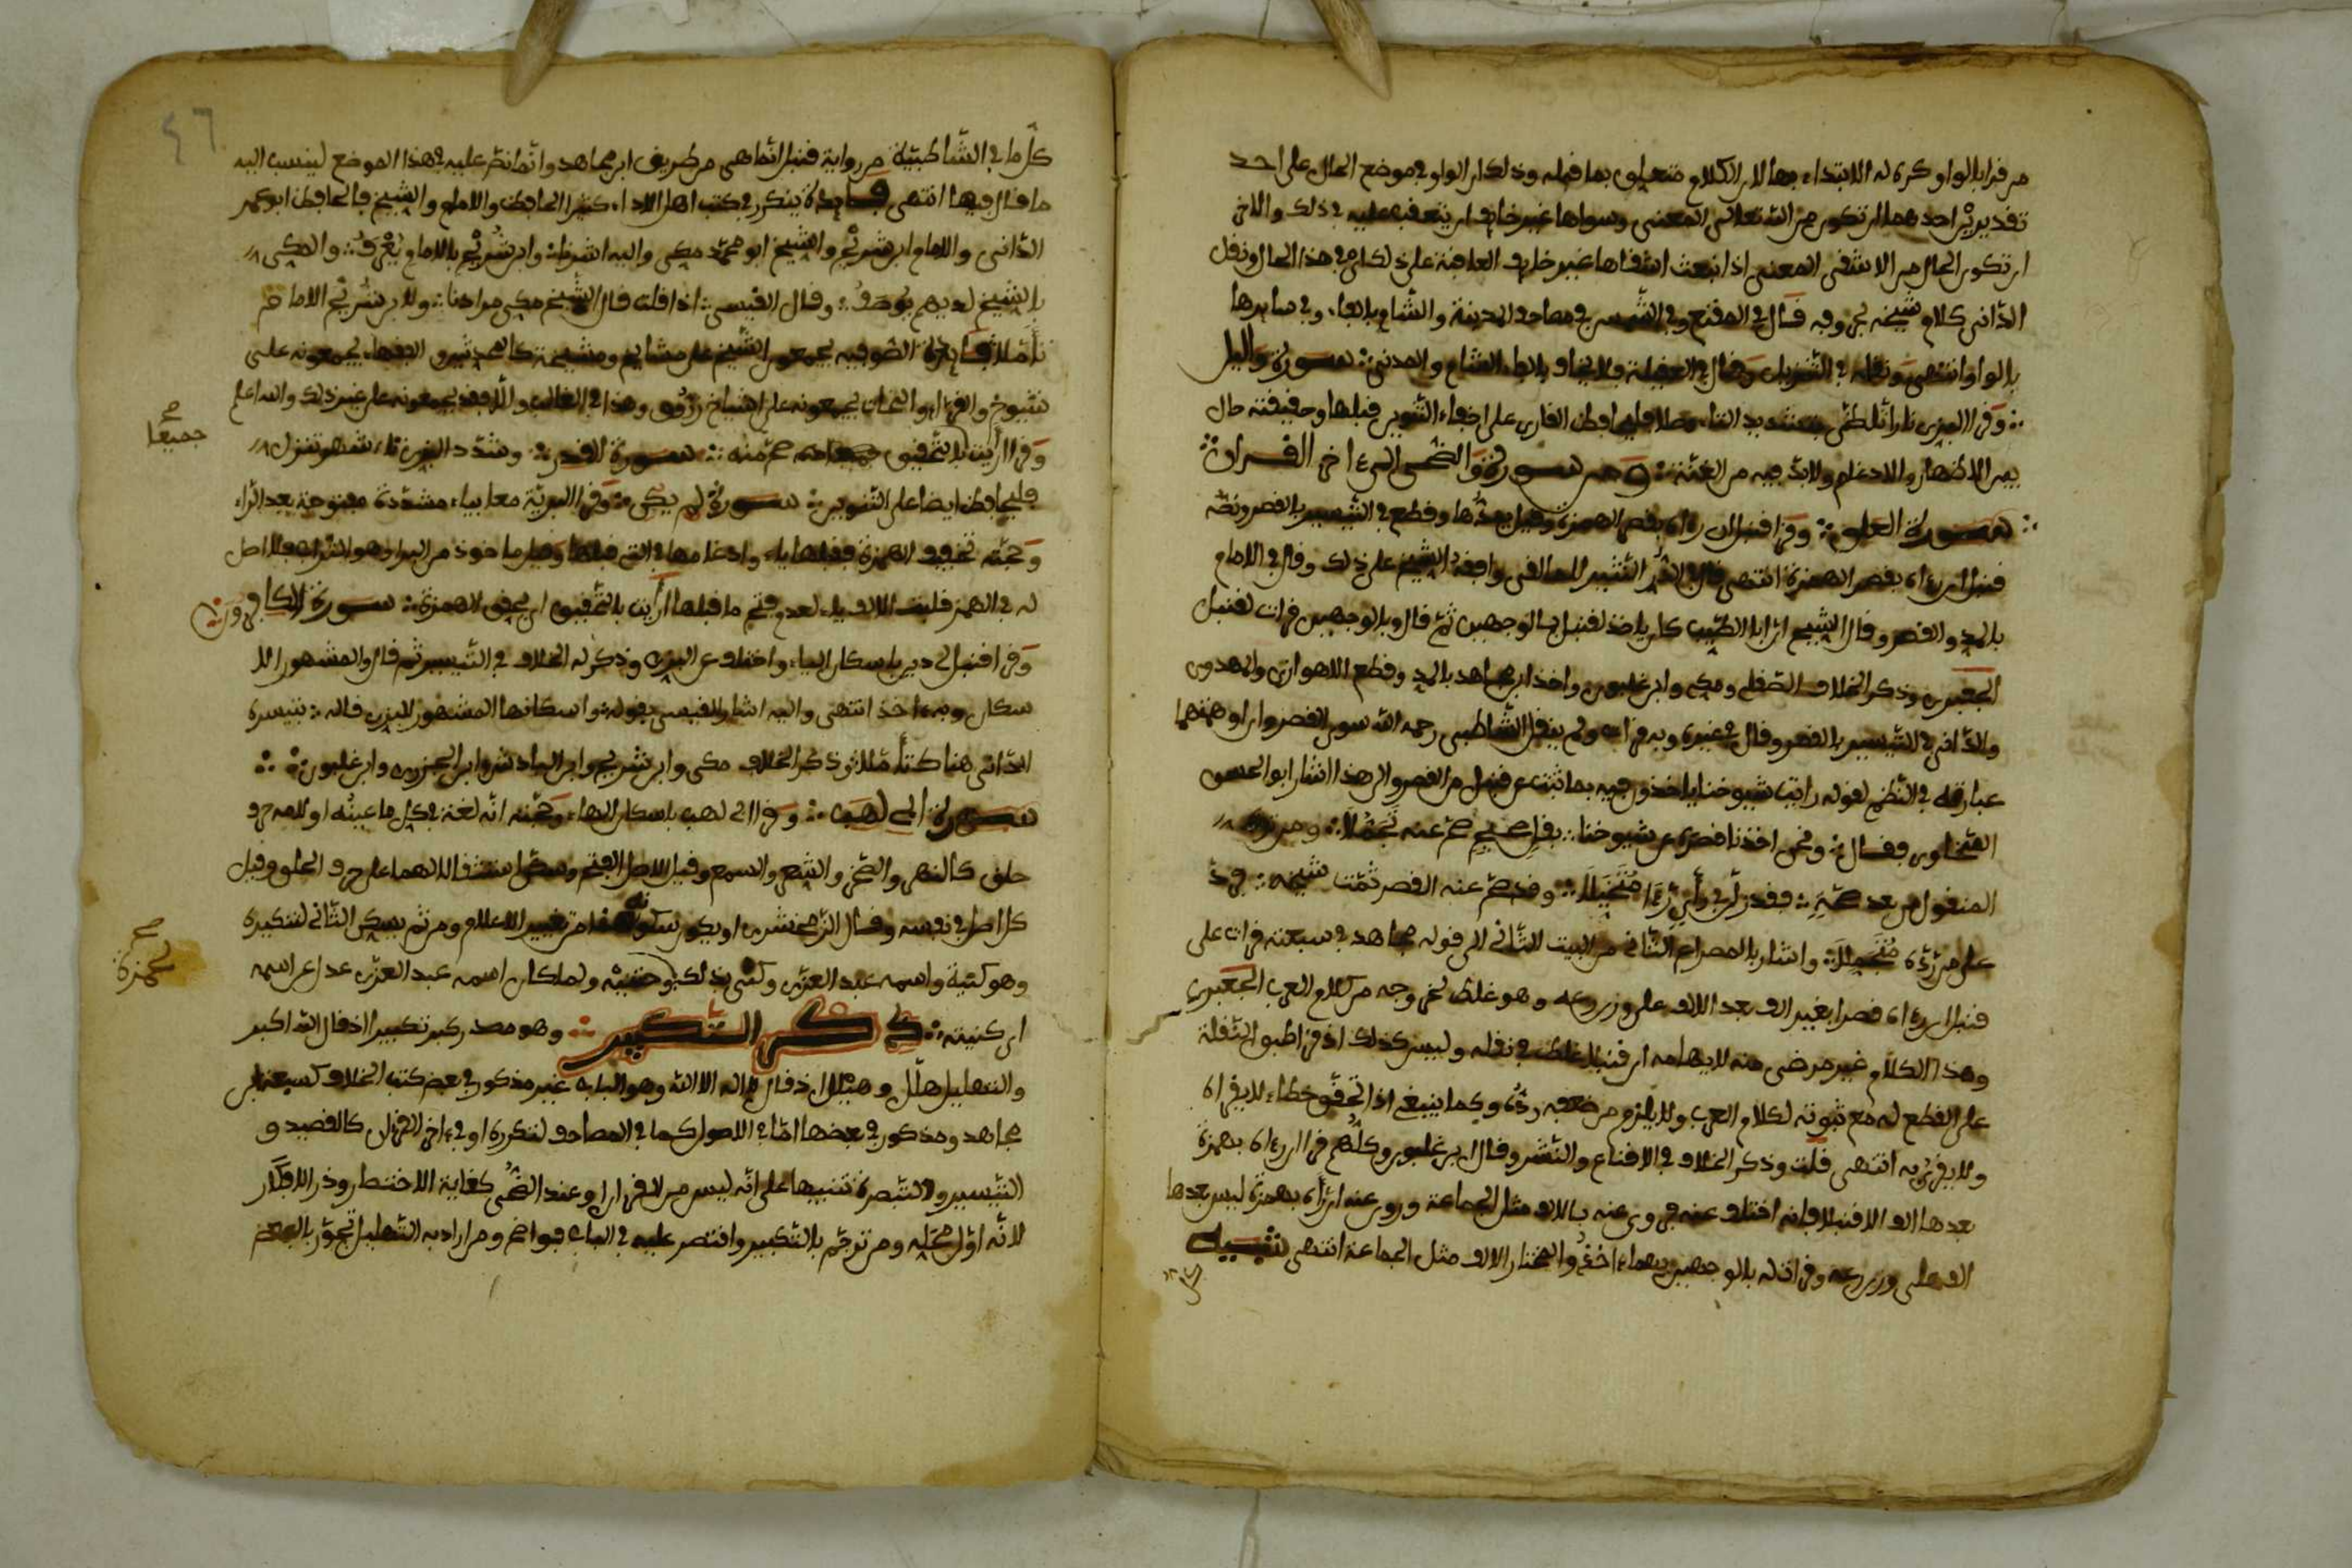 من قرأ بالواو كره له الابتداء بها لان الكلام متعلق بما قبله وذلك ان الواو في موضع الحال على احد
تقديرين احدهما ان تكون من الله تعالى المعنى وسواها غير خائف ان يتعقب عليه في ذلك والاخر
ان تكون الحال من الاشقى المعنى اذا نبعث اشقاها غير خائف العاقبة على ذلك في هذا الحال ونقل
الداني كلام شيخه بحروفه قال في المقنع وفي الشمس في مصاحف المدينة والشام بالفاء وفي سايرها
بالواو انتهى ونقله في التنزيل وقال في العقيلة فلا يخاف بالفاء الشام والمدني سورة واليل
وقرا البزي نارا تلظى بتشديد التاء وصلا فليحافظ القارى على اخفاء التنوين قبلها وحقيقته حال
بين الاظهار والادغام ولابد فيه من الغنة ومن سورة والضحى الى ءاخر القرءان
سورة العلق وقرا قنبل ان رءاه بقصر الهمزة وقيل بمدها وقطع في التيسير بالقصر ونصه
قنبل ان رءاه بقصر الهمزة انتهى قال في الدر النثير للمالقي وافقه الشيخ على ذلك وقال في الامام
بالمد والقصر وقال الشيخ ان ابا الطيب كان ياخذ لقنبل بالوجهين ثم قال وبالوجهين قرات لقنبل
الجعبري وذكر الخلاف الصقلي ومكي وابن غلبون واخذ ابن مجاهد بالمد وقطع الاهوازي والمهدوي
والداني في التيسير بالقصر وقال في غيره وبه قرات ولم ينقل الشاطبي رحمه الله سوى القصر وان اوهمتهما
عبارته في النظم لقوله رايت شيوخنا ياخذون فيه بما ثبت عن قنبل من القصر والى هذا اشار ابو الحسن
السخاوي فقال ونحن اخذنا قصره عن شيوخنا بنص صحيح صح عنه تجملا ومن ترك
المنقول من بعد صحة فقد زل في رأي رءا متخيلا وقد صح عنه القصر ثمت شيخه يرد
على من رده متجملا واشار بالمصراع الثاني من البيت الثاني الى قوله مجاهد في سبعته قرات على
قنبل ان رءاه قصرا بغير الف بعد الالف على وزن رعه وهو غلط نحو وجه من كلام العرب الجعبري
وهذا الكلام غير مرضى منه لايهامه ان قنبلا غلط في نقله وليس كذلك اذ قد اطبق النقلة
على القطع له مع ثبوته لكلام العرب ولا يلزم من ضعفه رده وكما ينبغي اذا تحقق خطاه لا يقراه
ولا يقرئ به انتهى قلت وذكر الخلاف في الاقناع والنشر وقال ابن غلبون وكلهم قرا ان رءاه بهمزة
بعدها الف الا قنبلا فانه اختلف عنه فروى عنه بالالف مثل الجماعة وروى عنه ان رأه بهمزة ليس بعدها
الف على وزن رعه وقرات له بالوجهين وبهما ءاخذ والمختار الالف مثل الجماعة انتهى تنبيه
٤٦
كل ما في الشاطبية من رواية قنبل انما هي من طريق ابن مجاهد وانما نص عليه في هذا الموضع لينسب اليه
ما قال فيها انتهى فايدة يتكرر في كتب اهل الاداء كثيرا الحافظ والامام والشيخ فالحافظ ابو عمر
الداني والامام ابن شريح والشيخ ابو محمد مكي واليه اشرنا وابن شريح بالامام يعرف والمكي
بالشيخ لديهم يوصف وقال القيسي اذا قلت قال الشيخ مكي مرادنا ولابن شريح الامام
تأملا فايدة الصوفيه يجمعون الشيخ على مشايخ ومشيخة كالمحدثين والفقهاء يجمعونه على
شيوخ والقراء والنحاة يجمعونه على اشياخ زروق وهذا في الغالب والا فقد يجمعونه على غير ذلك والله اعلم
وقرا ارايت بالتحقيق صح منه سورة القدر وشدد البزي تاء شهر تنزل
جميعا صح
فليحافظ ايضا على التنوين سورة لم يكن وقرا البرية معا بياء مشددة مفتوحة بعد الراء
وحجته تخفيف الهمزة فقلبها ياء وادغامها في التي قبلها وقيل ماخوذ من البرا وهو التراب فلا اصل
له في الهمز قلبت الالف ياء لعدم فتح ما قبلها أرايت بالتحقيق اي بحقق الهمزة سورة الكافرون
وقرا قنبل لي دين باسكان الياء واختلف عن البزي وذكر له الخلاف في التيسير ثم قال والمشهور الا
سكان وبه ءاخذ انتهى واليه اشار القيسي بقوله واسكانها المشهور للبزي قاله بتيسره
الداني هنا كن تأملا وذكر الخلاف مكي وابن شريح وابن الباذش وابن الجزري وابن غلبون
سورة ابي لهب وقرا ابي لهب باسكان الهاء وحجته انه لغة في كل ما عينه او لامه حرف
حلق كالنهر والصخر والشعر والسمع وقيل الاصل الفتح وسكن استثقالا لهما على حرف الحلق وقيل
كل اصل في نفسه وقال الزمخشري او يكون سكونه من تغيير الاعلام ومن ثم يسكن الثاني لتنكيره
وهو كنية واسمه عبد العزى وكني بذلك لحسنه ولما كان اسمه عبد العزى عدل عن اسمه
لحمزة صح
الى كنيته ذكر التكبير وهو مصدر كبر تكبيرا اذ قال الله اكبر
والتهليل هلل وهيلل اذ قال لا اله الا الله وهو الباب غير مذكور في بعض كتب الخلاف كسبعة ابن
مجاهد ومذكور في بعضها اما في الاصول كما في المصاحف لتكرره او في ءاخر القرءان كالقصيد و
التيسير والتبصرة تنبيها على انه ليس من القرءان او عند الضحى كغاية الاختصار وذر الافكار
لانه اول محله ومن ترجم بالتكبير واقتصر عليه في الباب فواضح ومن اراد به التهليل تجوز بالبعض